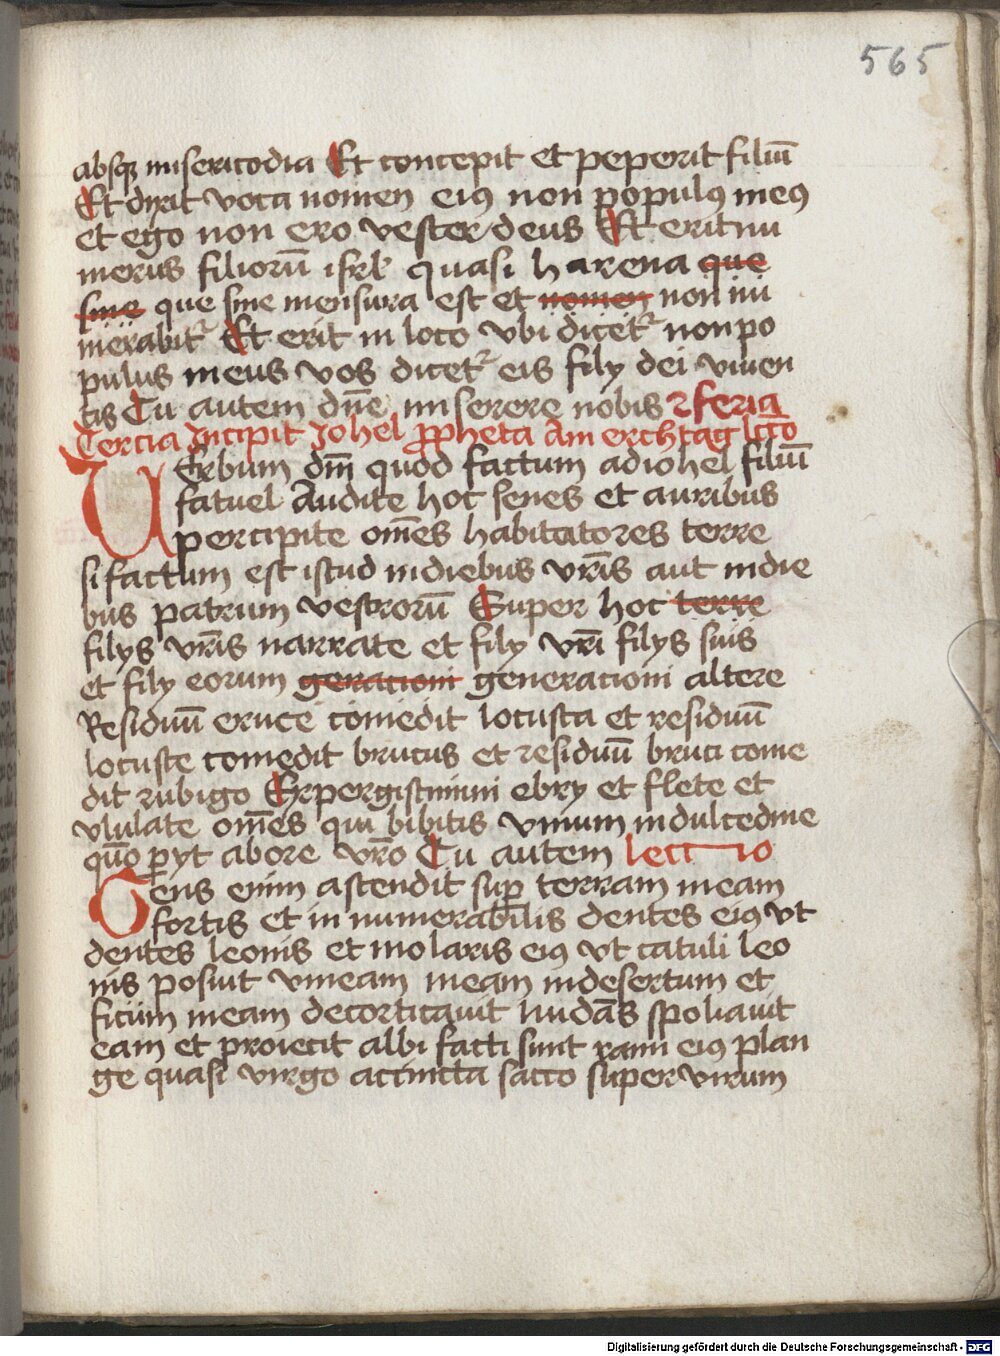 565
absqꝫ misericodia Et concepit et peperit filiū
Et dixit voca nomen eiꝰ non populꝰ meꝰ
et ego non ero vester deus Et erit nu
merus filiorū isrl̄ quasi harena que
sine que sine mensura est et nomen non nu
merabit᷑ Et erit in loco vbi dicet᷑ non po
pulus meus vos dicet᷑ eis filÿ dei viuen
tis Tu autem dn̄e miserere nobis feria
Tercia Incipit Johel ꝓpheta Am erchtag lcc̄o
VErbum dm̄ quod factum ad iohel filiū
fatuel Audite hoc senes et auribus
percipite om̄es habitatores terre
si factum est istud in diebus vr̄is aut in die
bus patrum vestrorū Super hoc terre
filÿs vr̄is narrate et filÿ vr̄i filÿs suis
et filÿ eorum genacioni generacioni altere
Residuū eruce comedit locusta et residuū
locuste comedit brucus et residuū bruci come
dit rubigo Expergiscimini ebrÿ et flete et
vlulate om̄es qui bibitis vinum in dulcedine
qm̄o pÿt ab ore vr̄o Tu autem lectio
Gens enim ascendit suꝑ terram meam
fortis et in numerabilis dentes eiꝰ vt
dentes leonis et molaris eiꝰ vt catuli leo
nis posuit vineam meam in desertum et
ficum meam decorticauit nudās spoliauit
eam et proiecit albi facti sunt rami eiꝰ plan
ge quasi virgo accincta sacco super virum
Digitalisierung gefördert durch die Deutsche Forschungsgemeinschaft - DFG